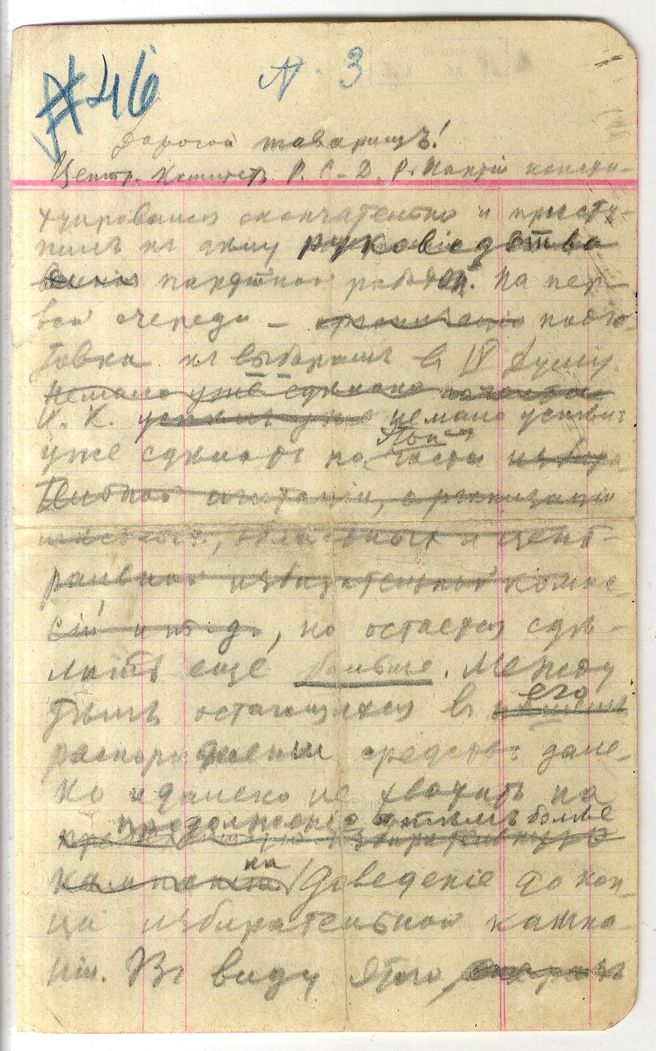 #46 N. 3
Дорогой товарищъ!
Центр. Комитетъ Р. С.-Д. Р. Партiи констi-
туировался окончательно и присту-
пилъ къ делу руководства
партiйной работой. На пер-
вой очереди – подго-
товка къ выборамъ в IV Думу.
Немало уже сделано
Ц. К. немало усилiй
этой
уже сделано по части избира-
тельной агитацiи, организацiи
областных и цент-
ральной избирательной комис-
сiи, но остается сде-
лать еще больше. Между
тем остающихся в его
распоряженiи средств дале-
ко и далеко не хватитъ на
продолженiе а тем более
на доведенiе до кон-
ца избирательной кампа-
нiи. Въ виду этого,